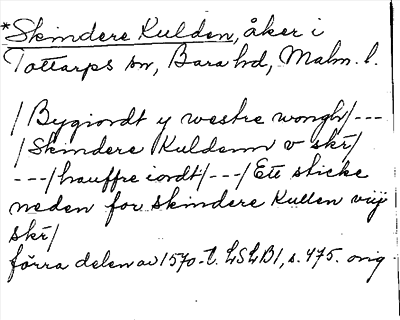 *Skindere Kulden, åker i
Tottarps sn, Bara hd, Malm. l.
/Bygiordt y westre wongh/---
/Skindere Kuldenn v skr/
---/hauffre iordt/---/Ett sticke
neden for skindere Kullen viij
skr/
förra delen av 1570-t. LSLB1, s. 475. orig